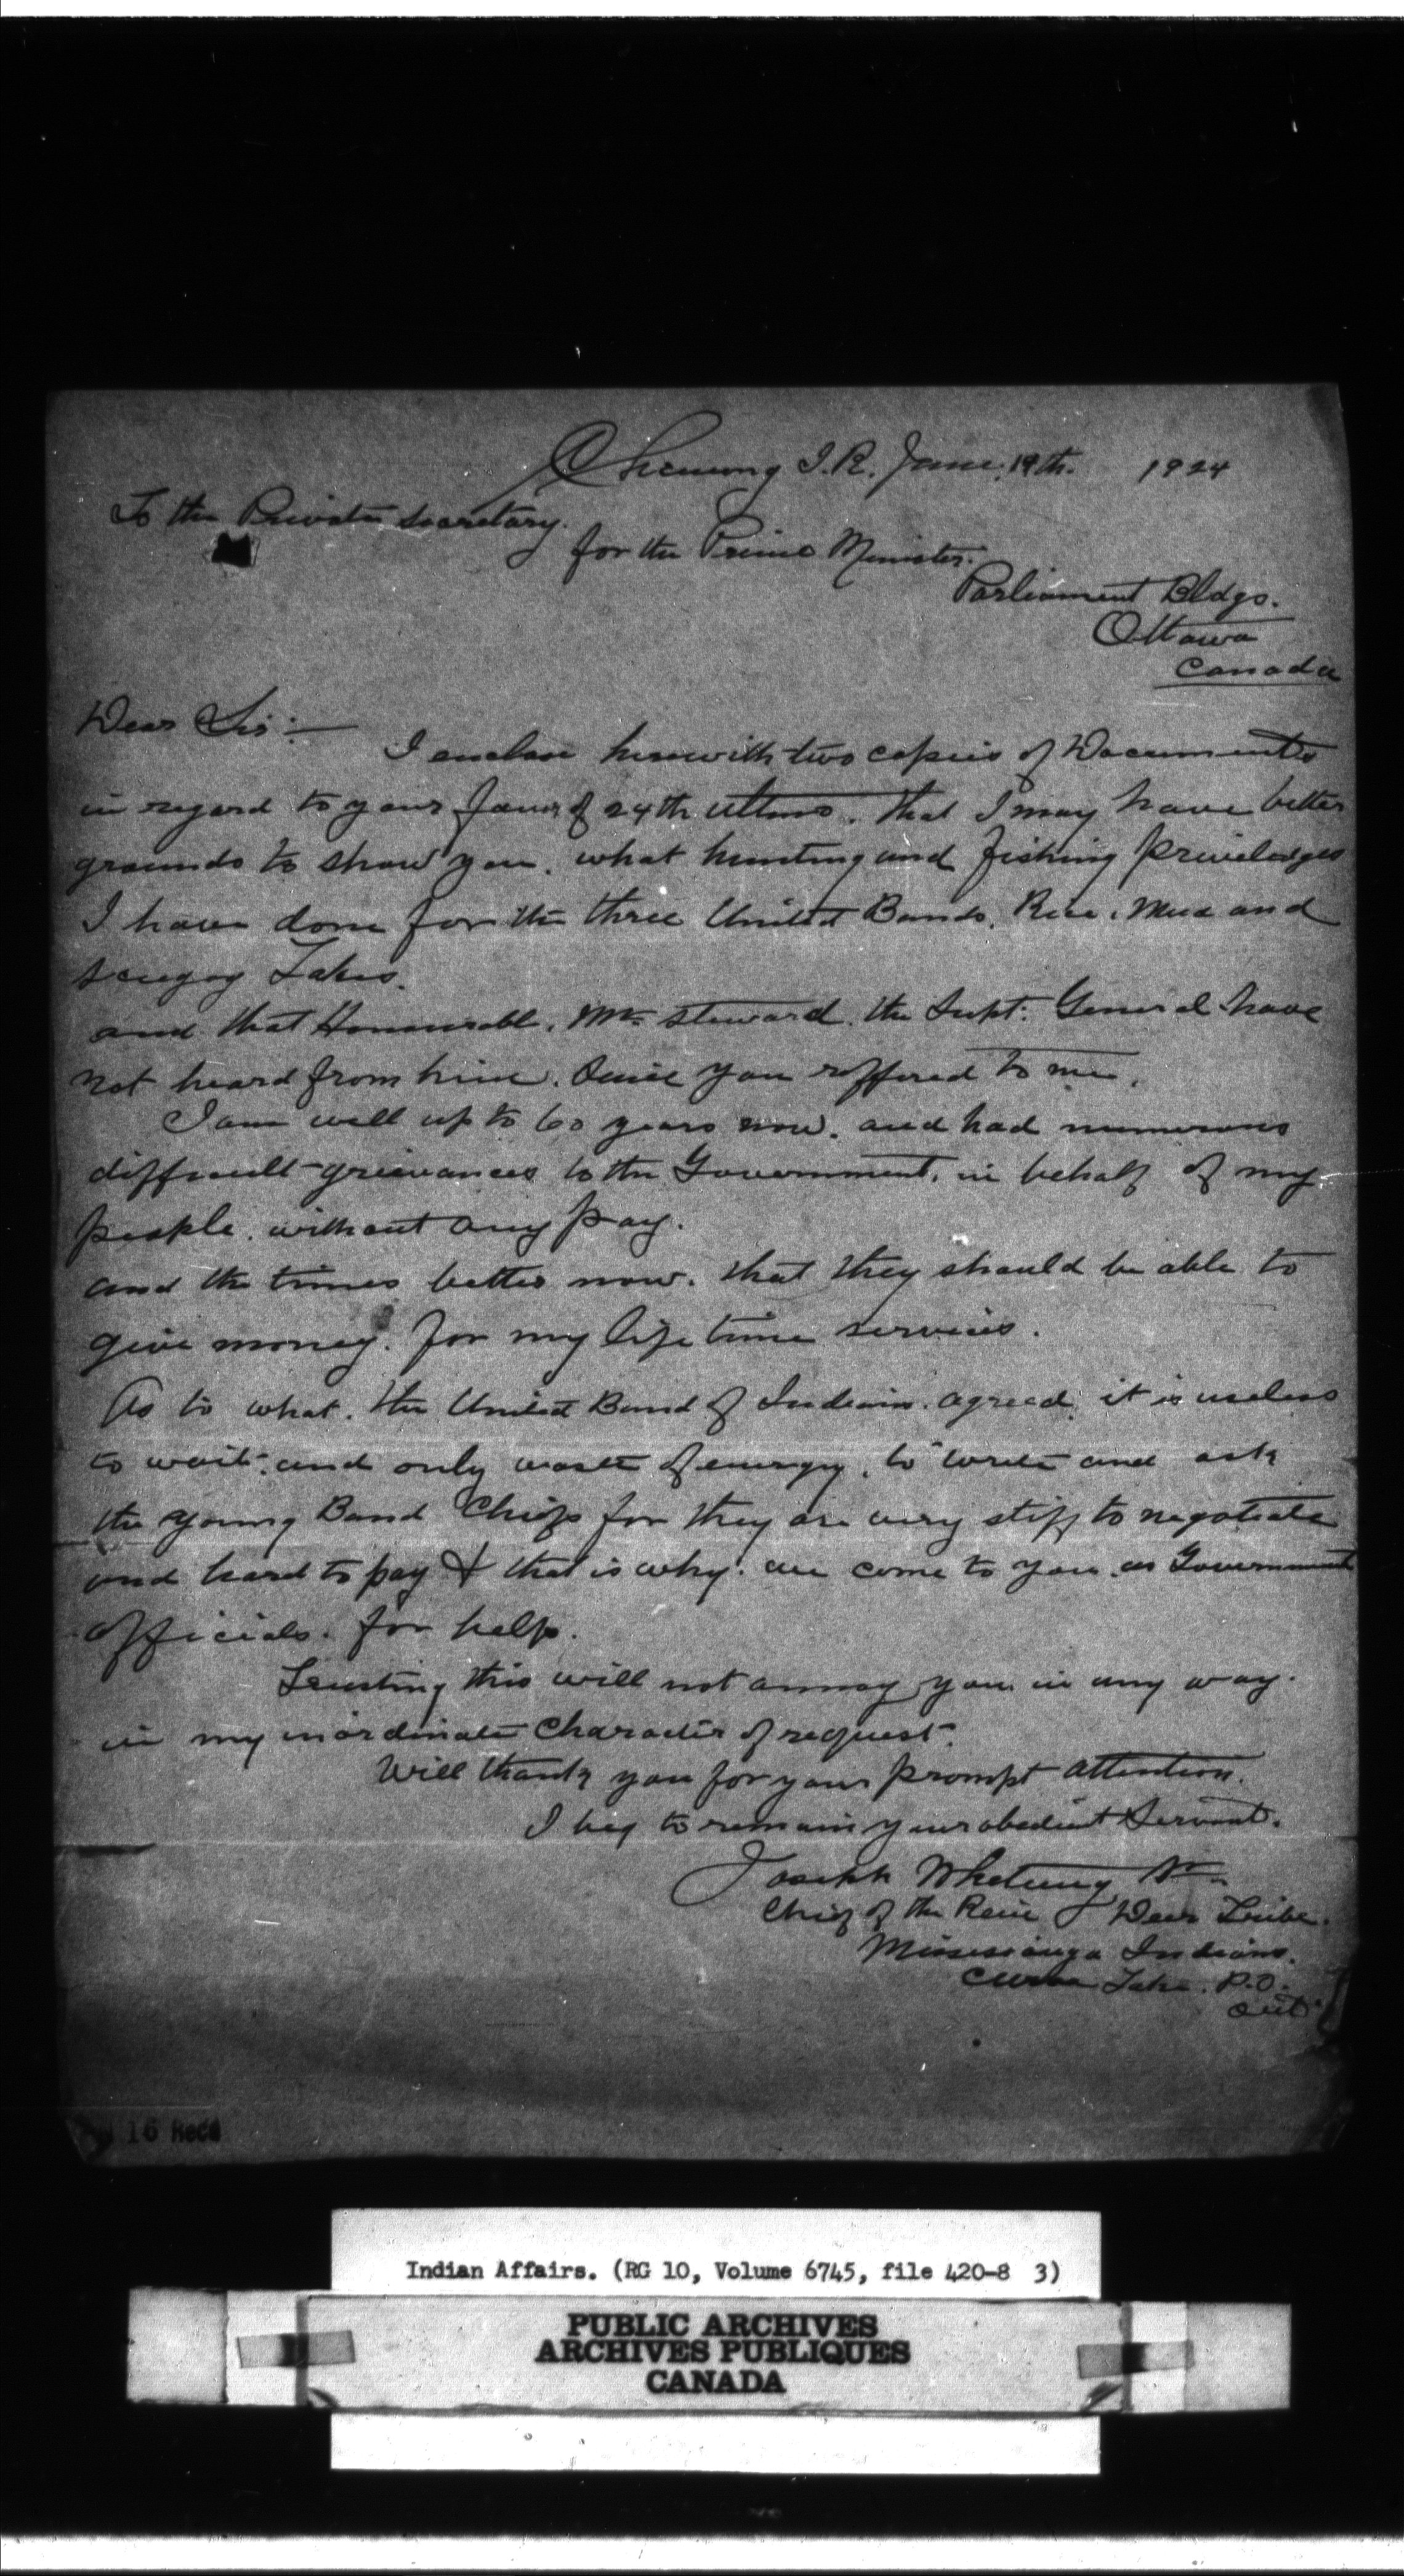 Chemong I.R. June, 19th. 1924
To the Private secretary.
for the Prime Minister.
Parliament Bldgs.
Ottawa
Canada
Dear Sir:—
I enclose herewith two copies of Documents
in regard to your favor of 24th ultmo. that I may have better
grounds to show you. what hunting and fishing priveledges
I have done for the three United Bands. Rice, Mud and
Scugog Lakes.
and that Honourable. Mr. Steward. the Supt. General have
not heard from him. Since you reffered to me.
I am well up to 60 years now. and had numerous
difficult grievances to the Government. in behalf of my
people. without any pay.
and the times better now. that they should be able to
give money. for my life time services.
As to what. the United Band of Indians. agreed. it is useless
to wait. and only waste of energy. to write and ask
the young Band Chiefs for they are very stiff to negotiate
and hard to pay & that is why. we come to you. as Government
officials. for help.
Trusting this will not annoy you in any way.
in my inordinate Character of request.
Will thank you for your prompt attention.
I beg to remain your obedient Servant.
Joseph Whetung Sr.
Chief of the Rein Deer Tribe.
Mississauga Indians.
Curve Lake. P.O.
Ont.
16 Recd
Indian Affairs. (RG 10, Volume 6745, file 420-8 3)
PUBLIC ARCHIVES
ARCHIVES PUBLIQUES
CANADA